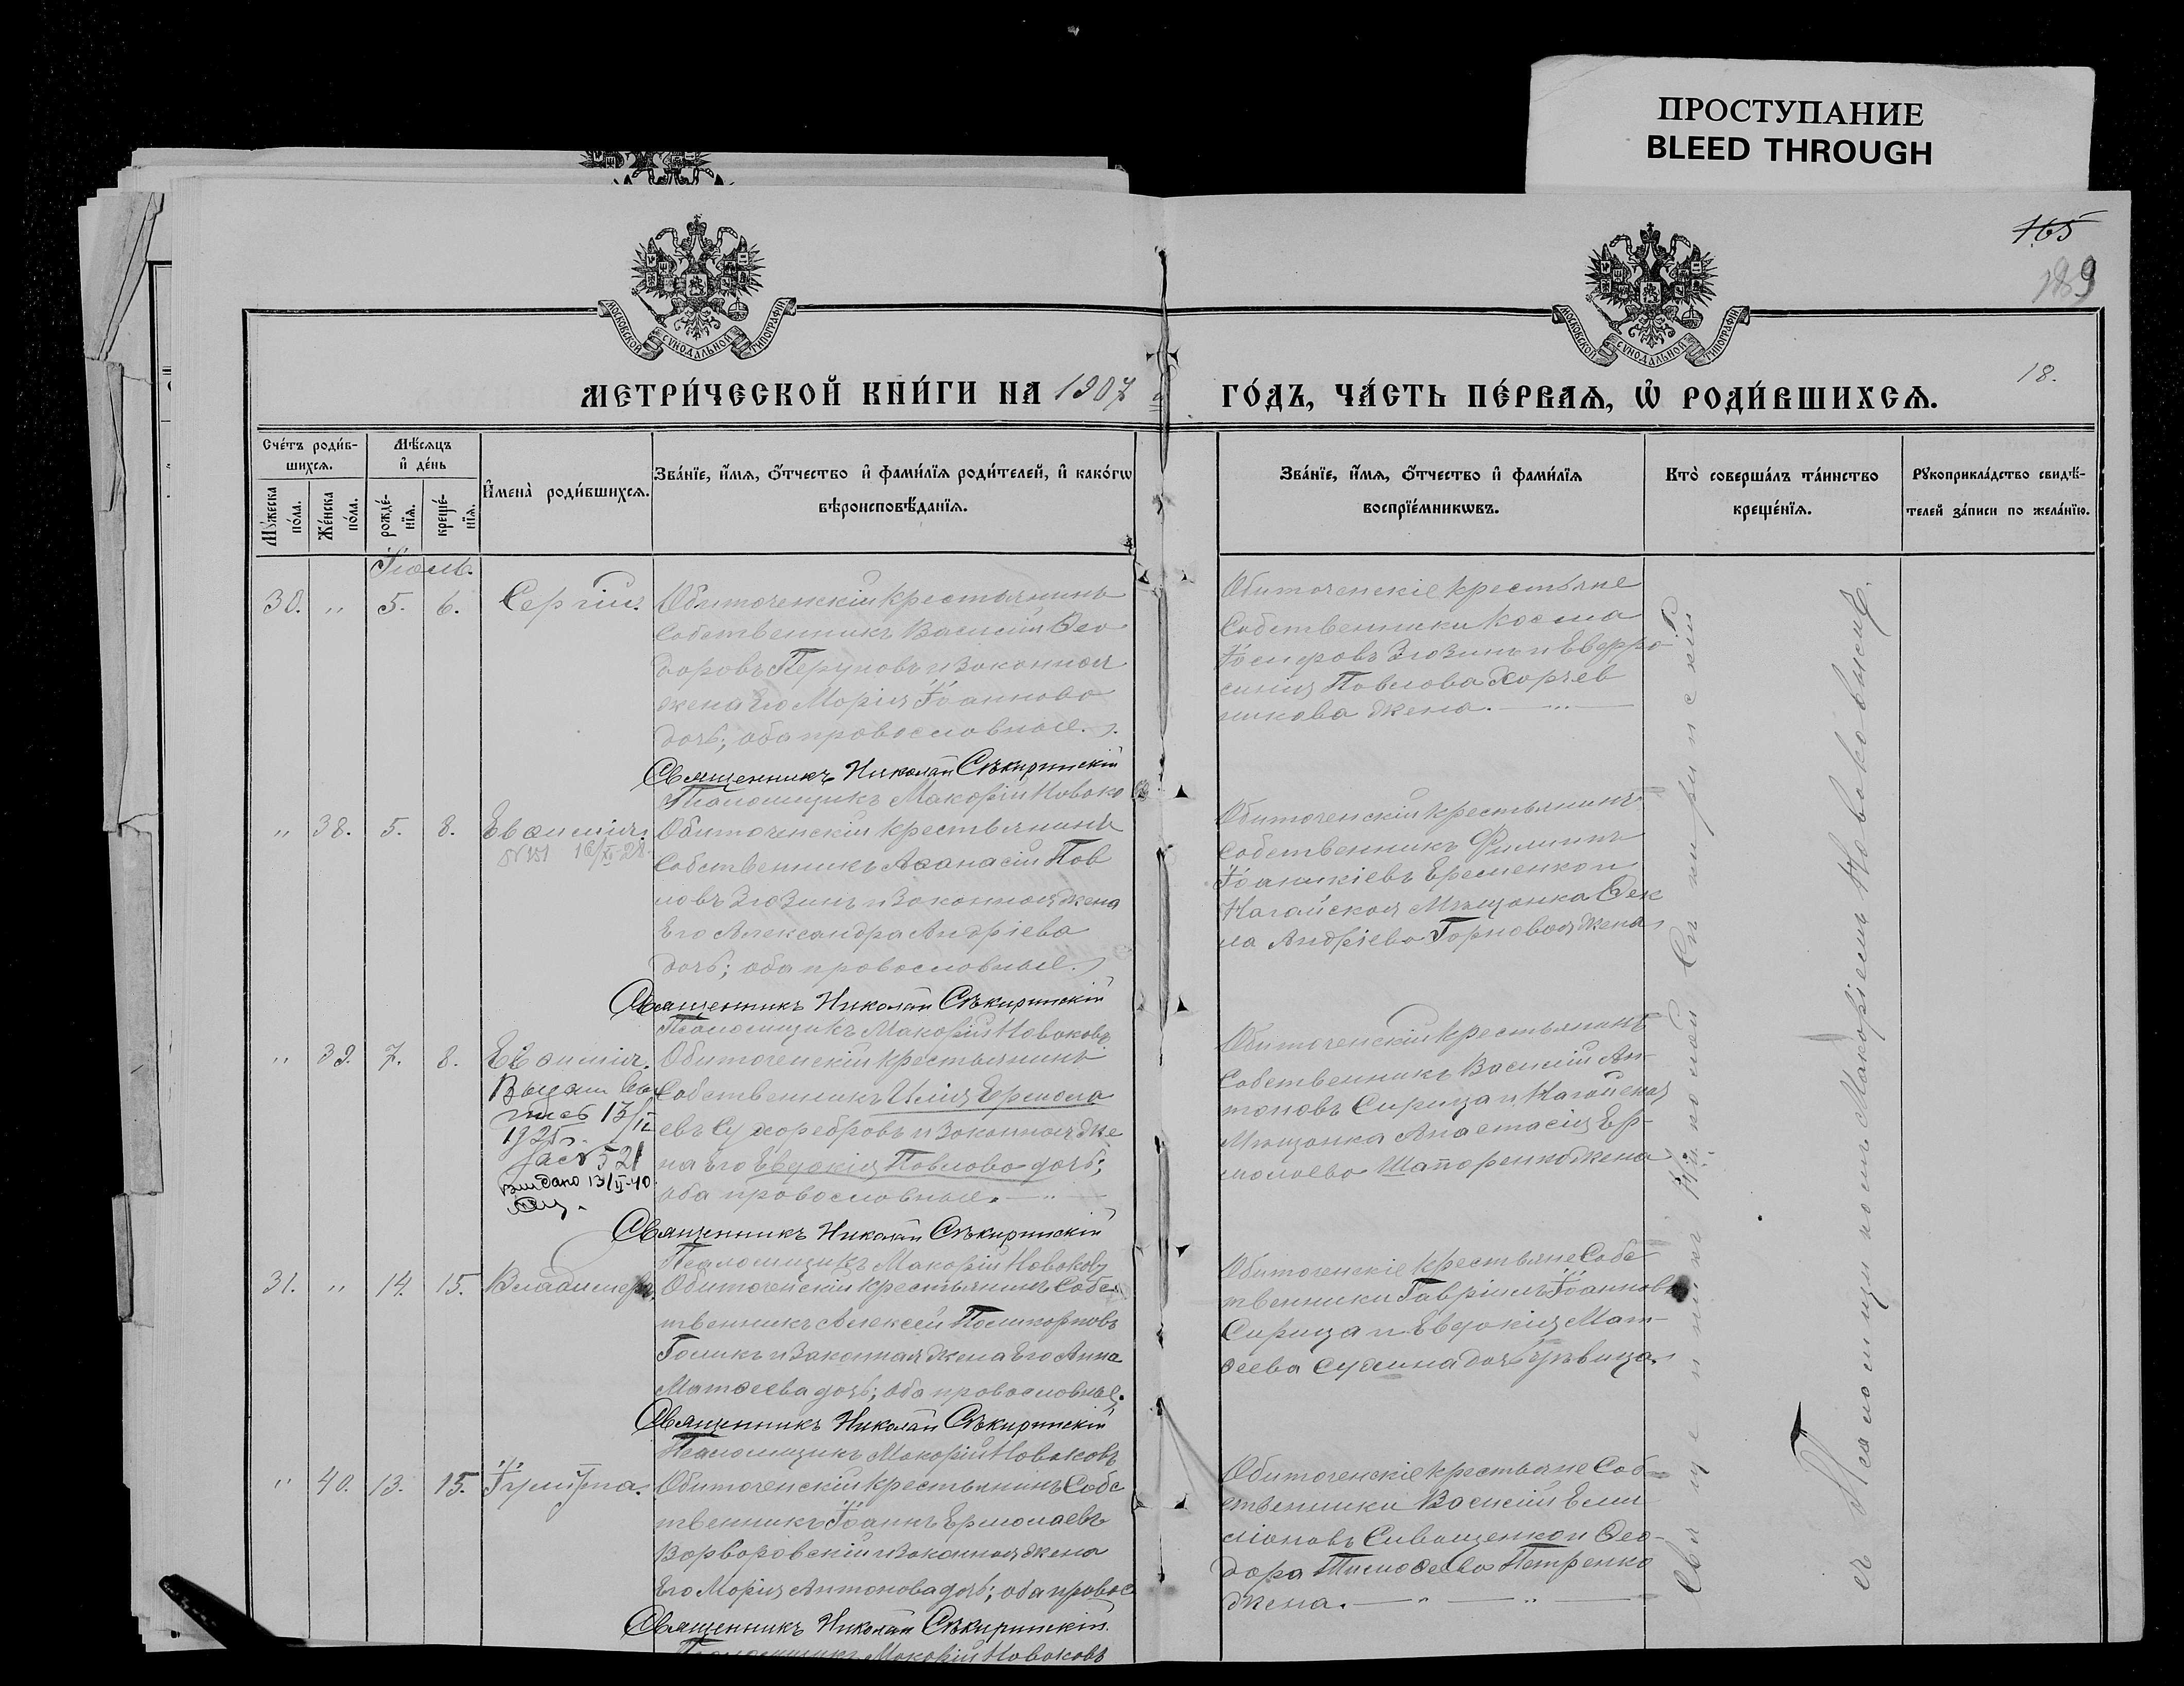 ПРОСТУПАНИЕ
BLEED THROUGH
165
189
18.
МОСКОВСКОЙ СѴНОДАЛЬНОЙ ТИПОГРАФІИ
МОСКОВСКОЙ СѴНОДАЛЬНОЙ ТИПОГРАФІИ
МЕТРИ́ЧЕСКОЙ КНИ́ГИ НА 1907
ГО́ДЪ, ЧА́СТЬ ПЕ́РВАЯ, Ѡ҆ РОДИ́ВШИХСЯ.
Сче́тъ роди́в-
шихся.
Му́жеска по́ла.
Же́нска по́ла.
Мѣ́сяцъ
и҆ де́нь
рожде́-
нїя.
креще́-
нїя.
И҆мена̀ роди́вшихся.
Зва́нїе, и҆́мя, ѻ҆́тчество и҆ фами́лїя роди́телей, и҆ како́гѡ
вѣроисповѣ́данїя.
Зва́нїе, и҆́мя, ѻ҆́тчество и҆ фами́лїя
воспрїе́мникѡвъ.
Кто̀ соверша́лъ та́инство
креще́нїя.
Рꙋкоприкла́дство свидѣ́-
телей за́писи по жела́нїю.
Іюль.
30. " 5. 6. Сергій.
Обиточенскій крестьянинъ
собственникъ Василій Ѳео
доровъ Перуновъ и законная
жена его Марія Іоаннова
дочь; оба православные.
Священникъ Николай Сѣкиринскій
Псаломщикъ Макарій Новако
Обиточенскіе крестьяне
собственники Косма
Іосифовъ Зюзинъ и Евфро
синія Павлова Харчев
никова жена.
" 38. 5. 8. Евѳимія.
Обиточенскій крестьянинъ
собственникъ Аѳанасій Пав
ловъ Зюзинъ и законная жена
его Александра Андріева
дочь; оба православные.
Священникъ Николай Сѣкиринскій
Псаломщикъ Макарій Новаковъ
Обиточенскій крестьянинъ
собственникъ Филиппъ
Іоаникіевъ Еременко и
Нагайская мѣщанка Ѳек
ла Андріева Горновая жена
" 39. 7. 8. Евѳимія.
13/II
1925
521
Видано 13/II-40
Обиточенскій крестьянинъ
собственникъ Илія Ермола
евъ Сухоребровъ и законная же
на его Евдокія Павлова дочь;
оба православные.
Священникъ Николай Сѣкиринскій
Псаломщикъ Макарій Новаковъ
Обиточенскій крестьянинъ
собственникъ Василій Ан-
тоновъ Сирица и Нагайская
мѣщанка Анастасія Ер-
молаева Шапоренко жена
31. " 14. 15. Владимеръ.
Обиточенскій крестьянинъ собс
твенникъ Алексей Поликарповъ
Голикъ и законная жена его Анна
Матѳеева дочь; оба православные.
Священникъ Николай Сѣкиринскій
Псаломщикъ Макарій Новаковъ
Обиточенскіе крестьяне собс
твенники Гавріилъ Іоанновъ
Сирица и Евдокія Мат-
ѳеева Сухина дочь дѣвица.
" 40. 13. 15. Іулитта.
Обиточенскій крестьянинъ собс
твенникъ Іоаннъ Ермолаевъ
Варваровскій и законная жена
его Марія Антонова дочь; оба правос
Священникъ Николай Сѣкиринскій.
Псаломщикъ Макарій Новаковъ
Обиточенскіе крестьяне соб-
ственники Василій Еми
ліановъ Сиващенко и Ѳео-
дора Тимоѳеева Петренко
жена.
Священникъ Николай Сѣкиринскій
съ Псаломщикомъ Макаріемъ Новаковымъ.